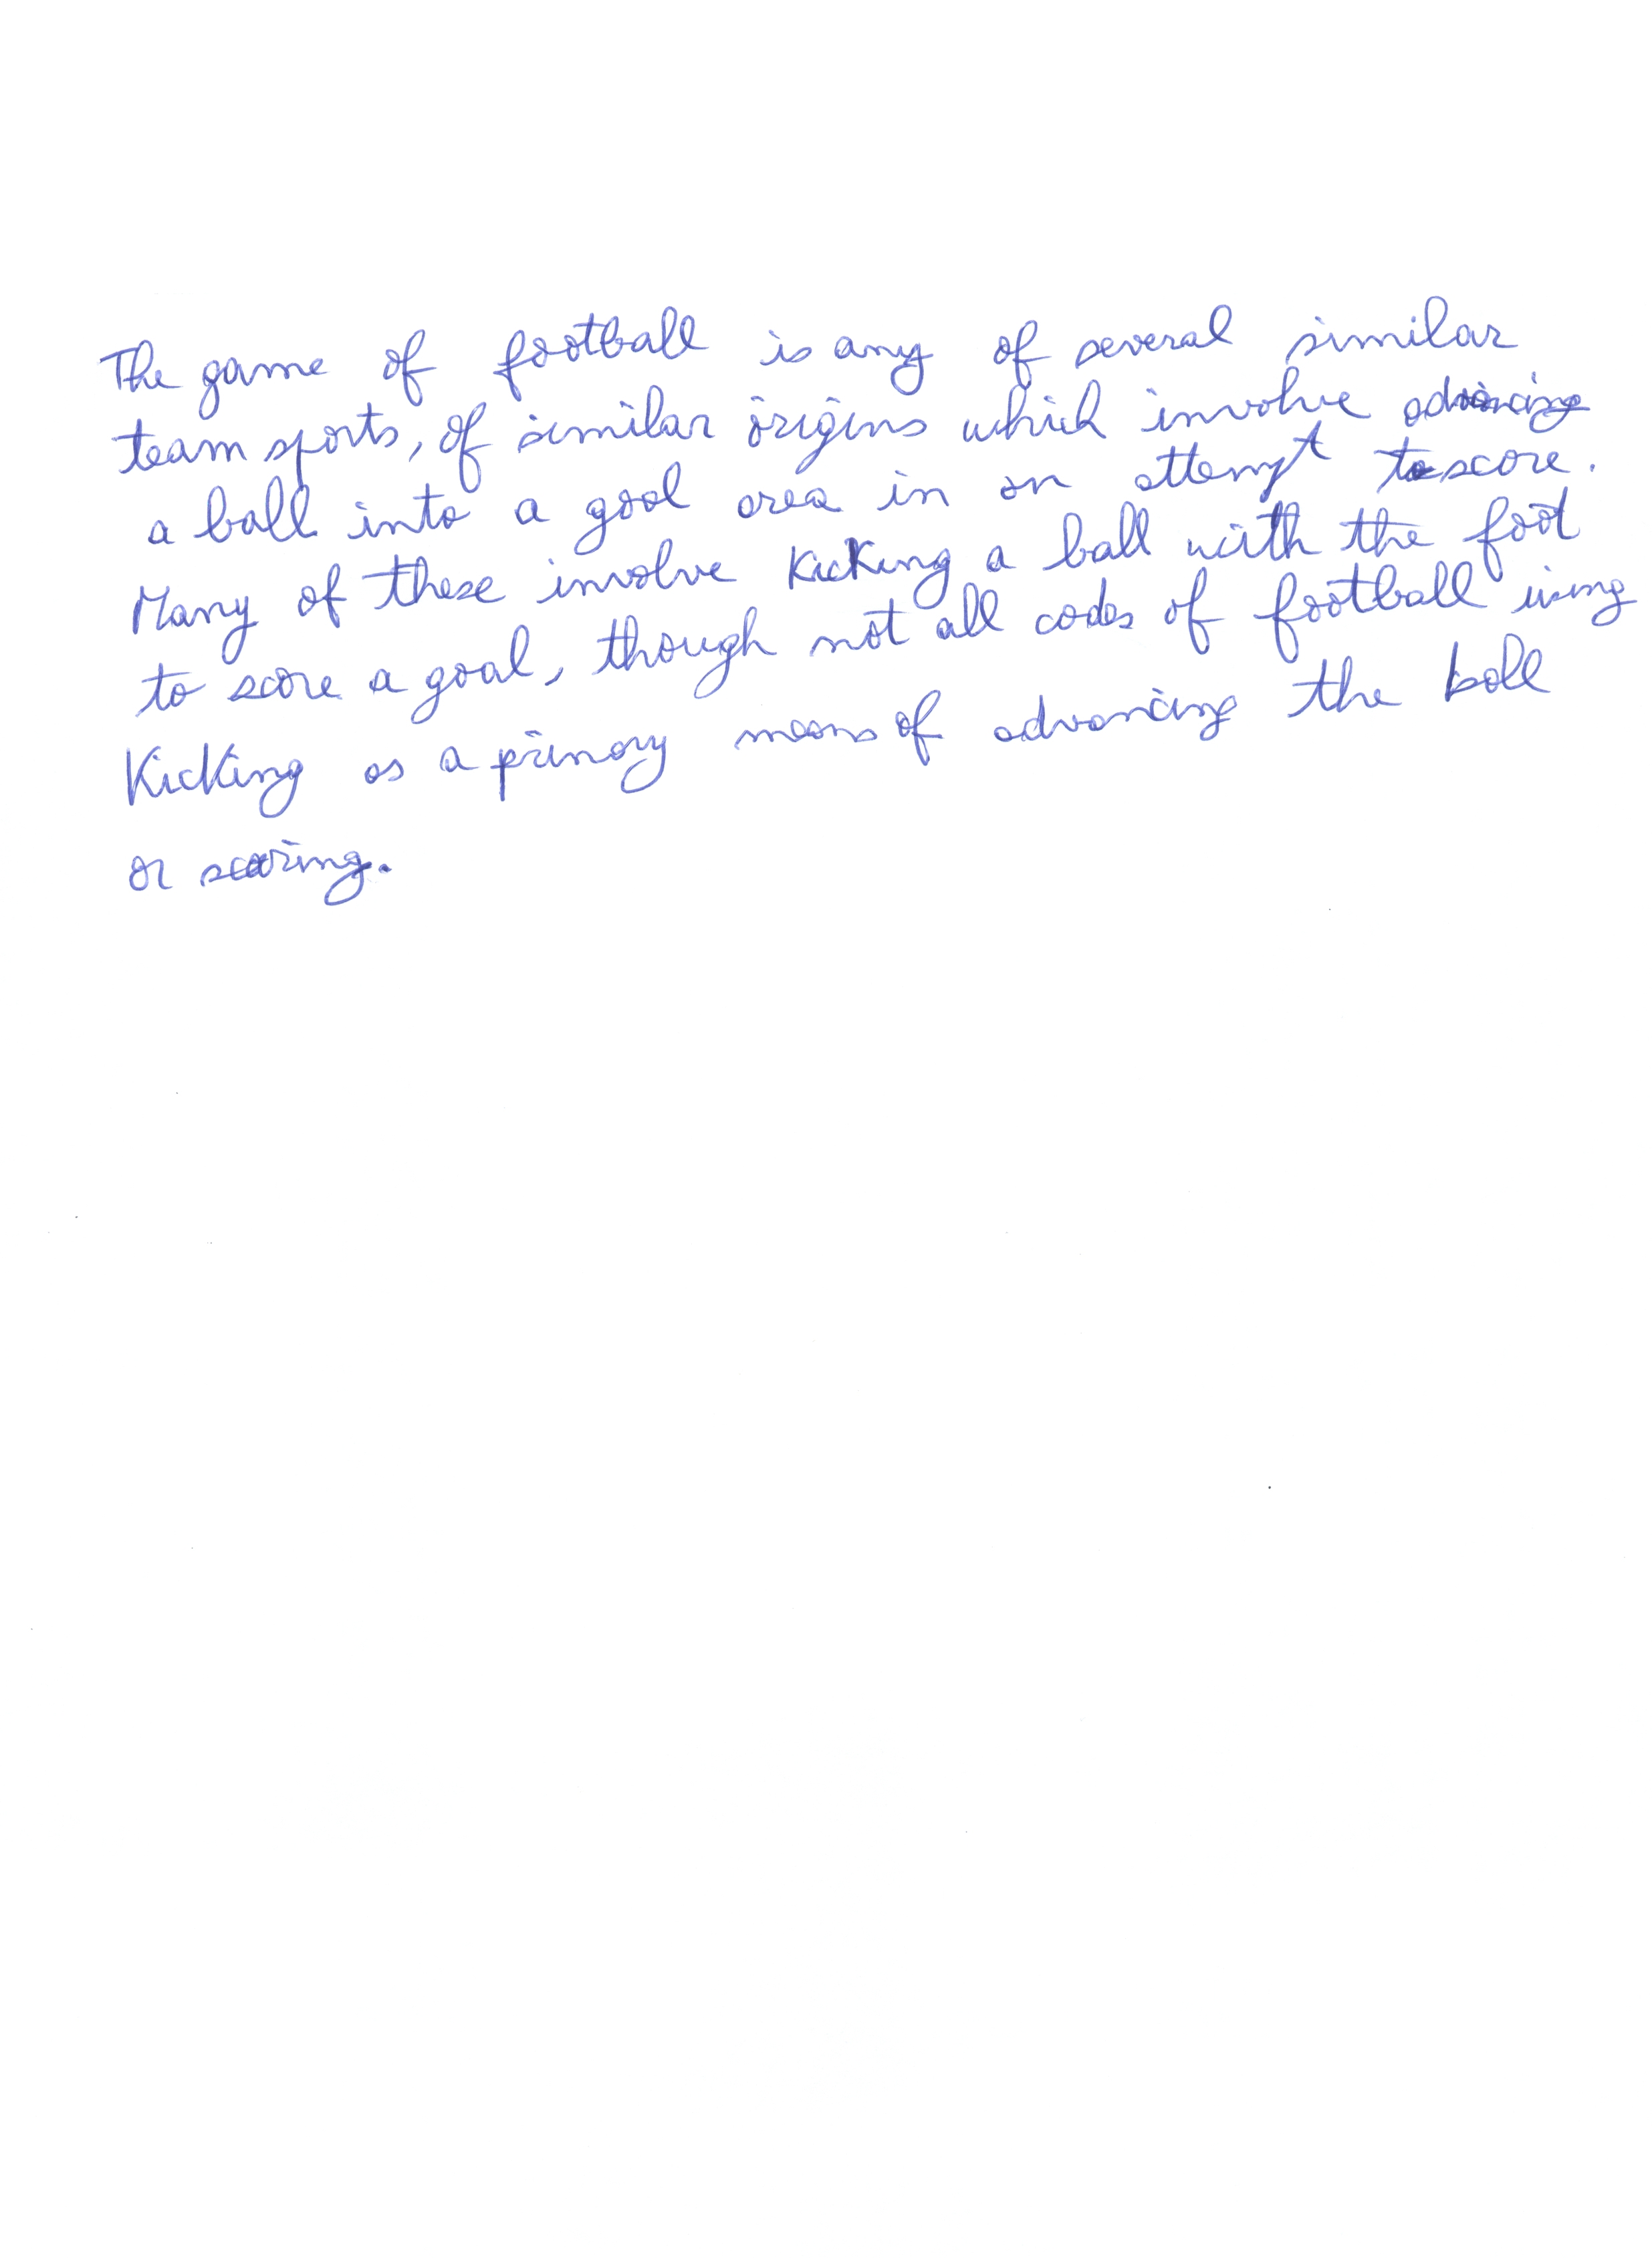 The game of football is any of several similar
team sports, of similar origins which involve advancing
a ball into a goal area in an attempt to score.
Many of these involve kicking a ball with the foot
to score a goal, though not all codes of football using
Kicking as a primary means of advancing the ball
or scoring.